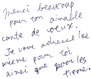 Merci beaucoup
pour ton aimable
carte de voeux.
Je vous adresse les
miens pour toi
ainsi que pour les
tiens.